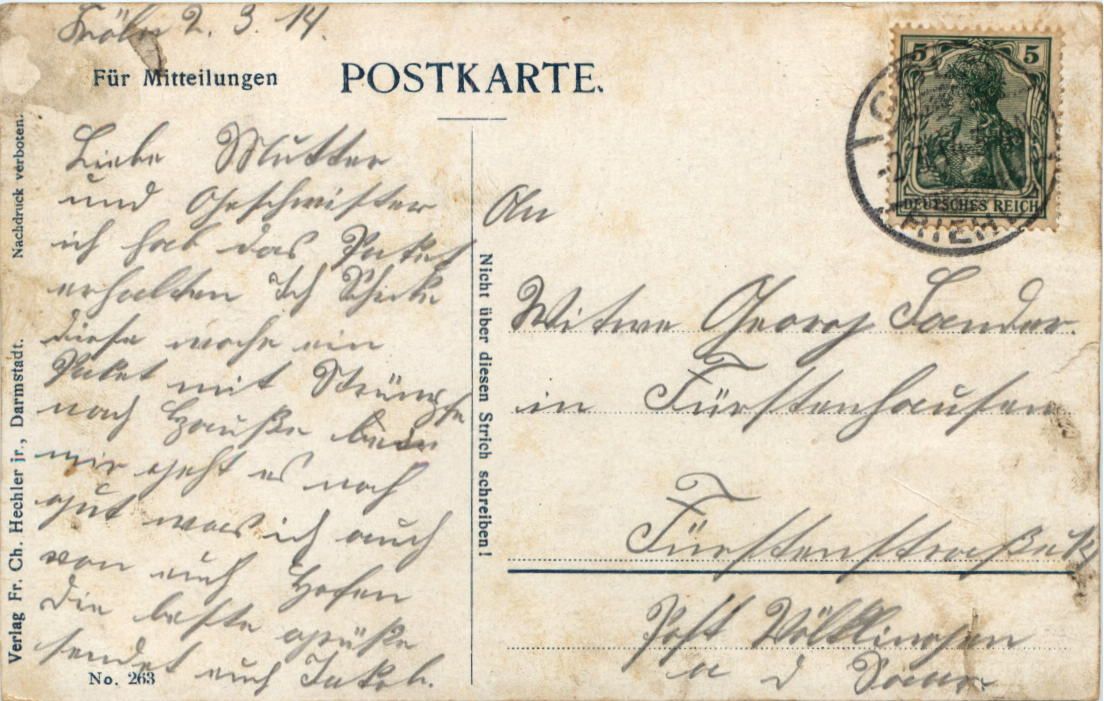 Köln 2. 3. 14.
Für Mitteilungen
POSTKARTE.
Liebe Mutter
und Geschwister
ich hab das Paket
erhalten Ich Schicke
diese woche ein
Paket mit Strümpfe
nach Hauße
mir geht es noch
gut was ich auch
von euch Hofen
Die beste grüße
sendet euch Jakob.
An
Witwe Georg Sander.
in Fürstenhausen
Fürstenstraße
Post Völklingen
a d Saar.
Nicht über diesen Strich schreiben!
Nachdruck verboten.
Verlag Fr. Ch. Hechler jr., Darmstadt.
No. 263
5 5
DEUTSCHES REICH
RIEHL